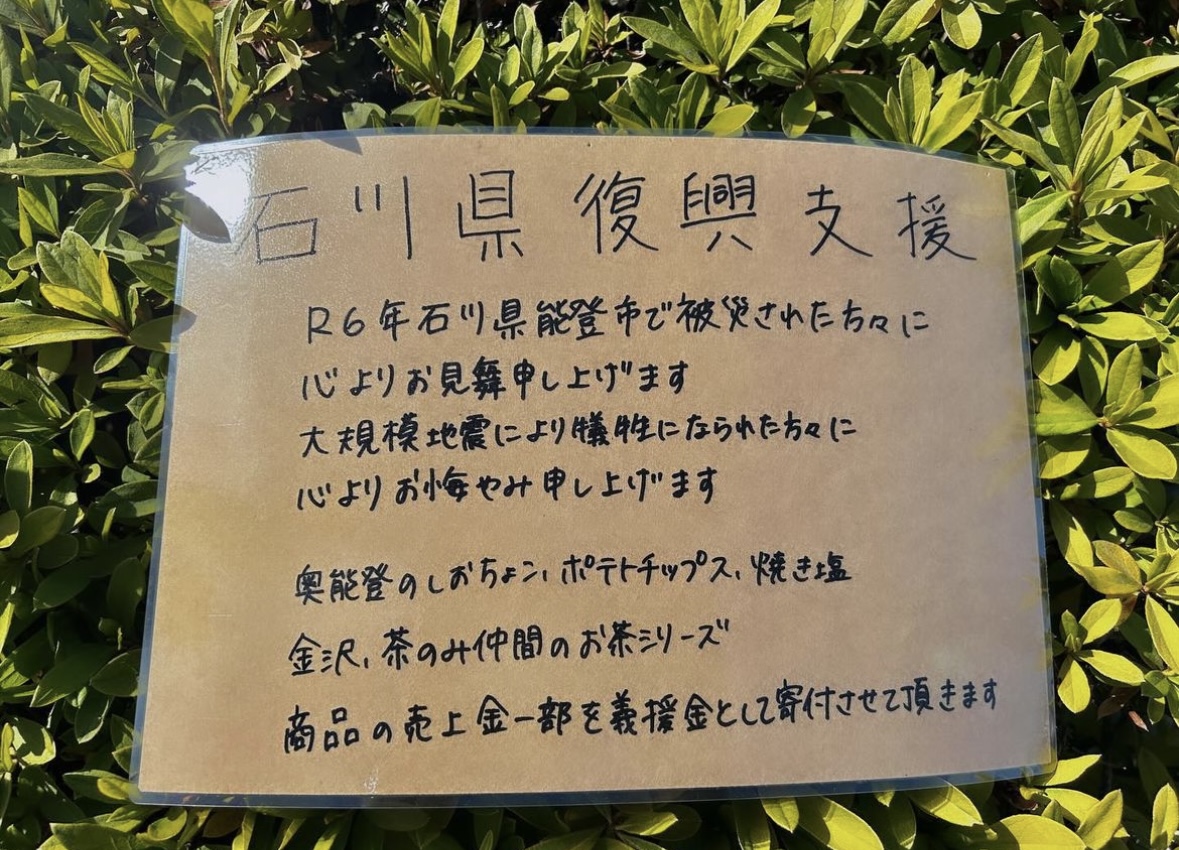 石川県 復興 支援
R6年石川県能登市で被災された方々に
心よりお見舞申し上げます
大規模地震により犠牲になられた方々に
心よりお悔やみ申し上げます
奥能登のしおちょこ、ポテトチップス、焼き塩
金沢、茶のみ仲間のお茶シリーズ
商品の売上金一部を義援金として寄付させて頂きます